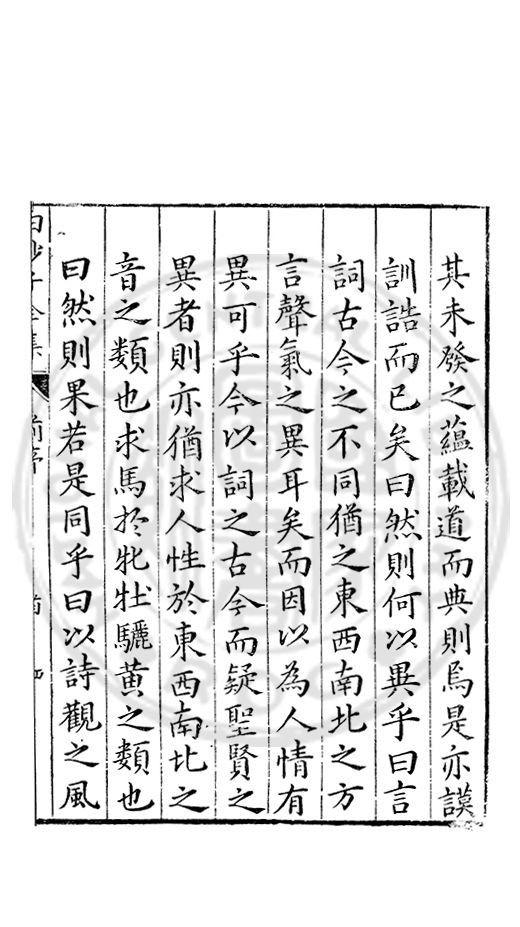 其未發之蘊載道而典則焉是亦謨
訓誥而已矣曰然則何以異乎曰言
詞古今之不同猶之東西南北之方
言聲氣之異耳矣而因以為人情有
異可乎今以詞之古今而疑聖賢之
異者則亦猶求人性於東西南北之
音之類也求馬於牝牡驪黃之類也
曰然則果若是同乎曰以詩觀之風
白沙子全集
前序